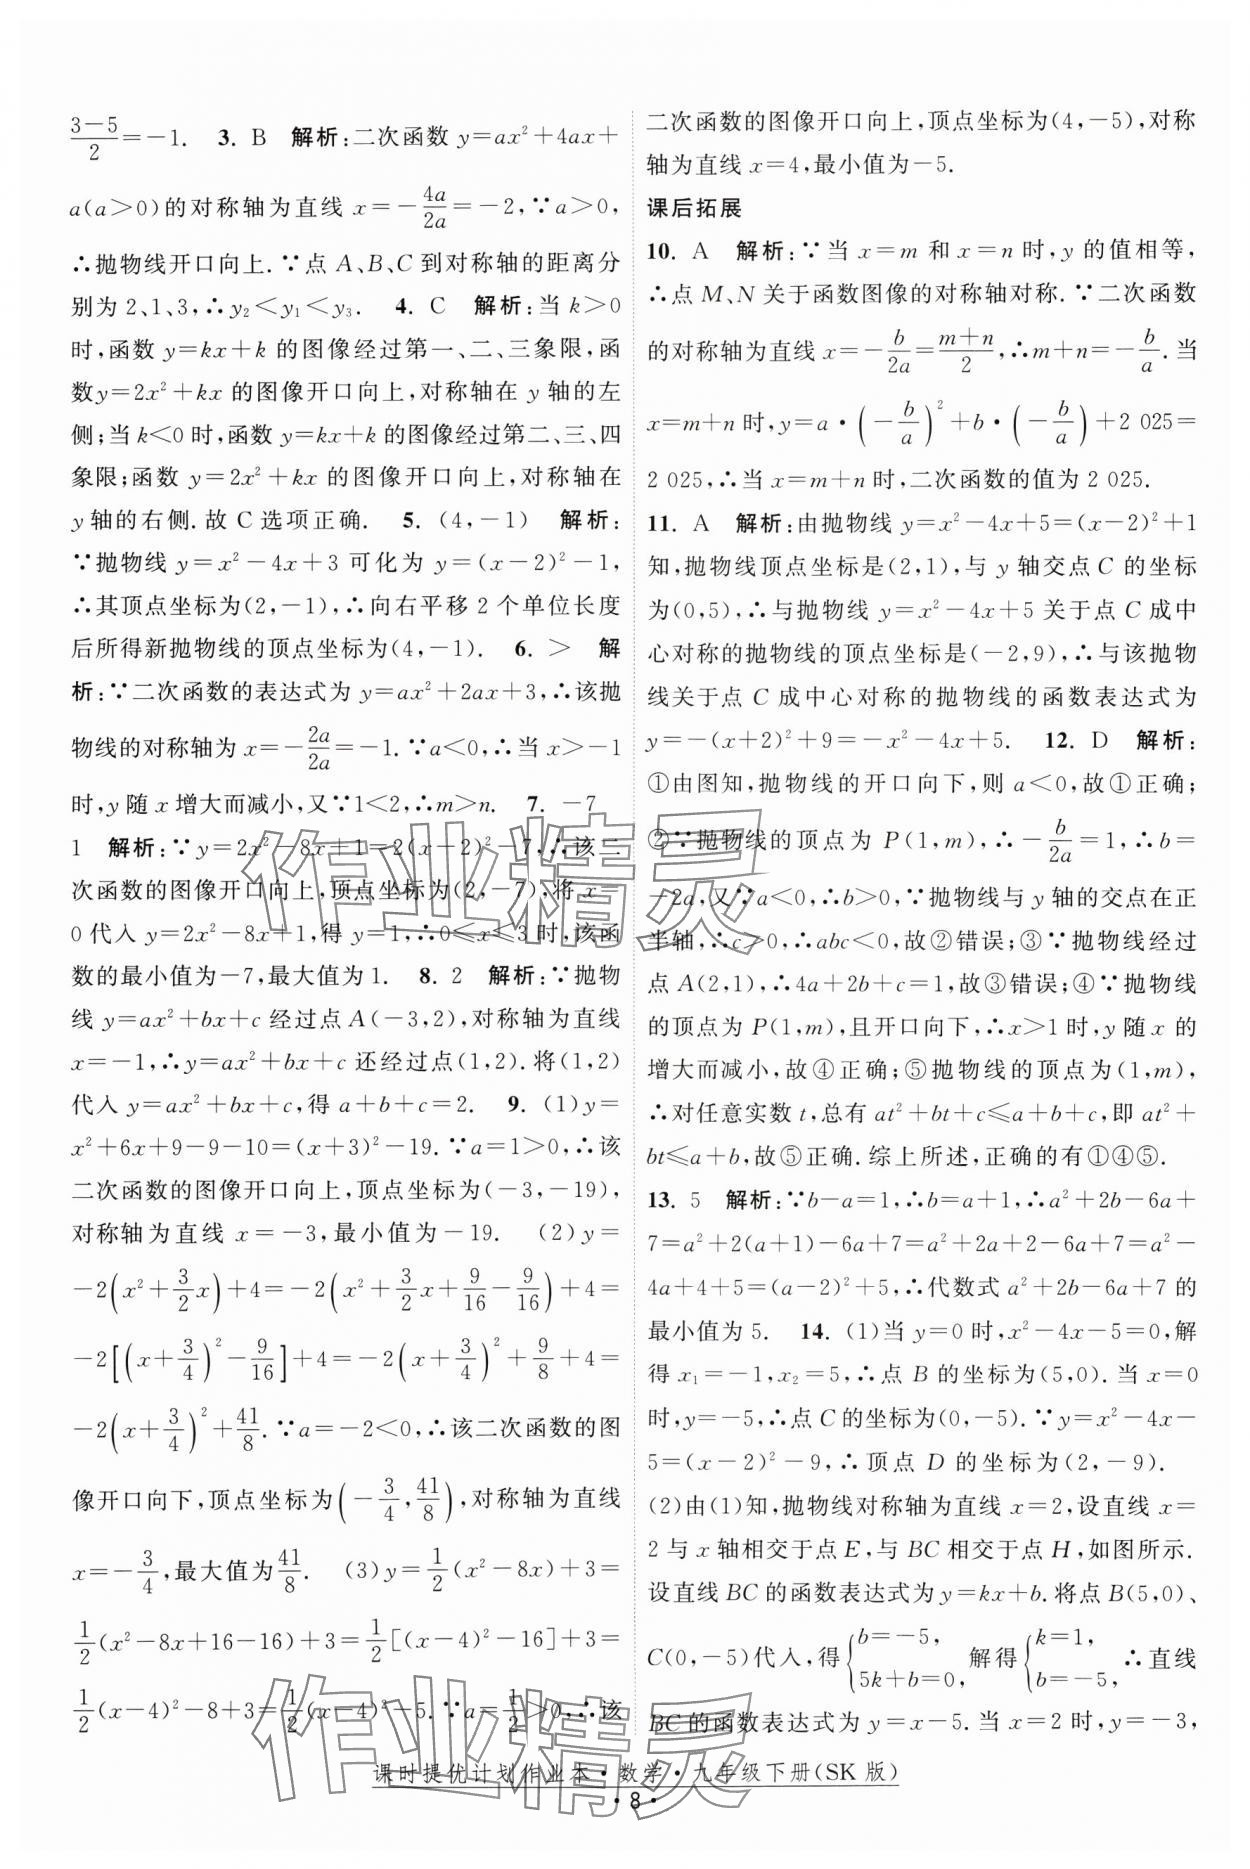 3－5/2＝－1. 3. B 解析:二次函数 y＝ax²＋4ax＋
a(a＞0)的对称轴为直线 x＝－4a/2a＝－2,∵a＞0,
∴抛物线开口向上.∵点 A、B、C 到对称轴的距离分
别为 2、1、3,∴y₂＜y₁＜y₃. 4. C 解析:当 k＞0
时,函数 y＝kx＋k 的图像经过第一、二、三象限,函
数y＝2x²＋kx 的图像开口向上,对称轴在 y 轴的左
侧;当 k＜0 时,函数 y＝kx＋k 的图像经过第二、三、四
象限;函数 y＝2x²＋kx 的图像开口向上,对称轴在
y 轴的右侧.故 C 选项正确. 5. (4,－1) 解析:
∵抛物线 y＝x²－4x＋3 可化为 y＝(x－2)²－1,
∴其顶点坐标为(2,－1),∴向右平移 2 个单位长度
后所得新抛物线的顶点坐标为(4,－1). 6. ＞ 解
析:∵二次函数的表达式为 y＝ax²＋2ax＋3,∴该抛
物线的对称轴为 x＝－2a/2a＝－1.∵a＜0,∴当 x＞－1
时,y 随 x 增大而减小,又∵1＜2,∴m＞n. 7. －7
1 解析:∵y＝2x²－8x＋1＝2(x－2)²－7,∴该二
次函数的图像开口向上,顶点坐标为(2,－7),将 x＝
0 代入 y＝2x²－8x＋1,得 y＝1,∴0≤x≤3 时,该函
数的最小值为－7,最大值为 1. 8. 2 解析:∵抛物
线 y＝ax²＋bx＋c 经过点 A(－3,2),对称轴为直线
x＝－1,∴y＝ax²＋bx＋c 还经过点(1,2).将(1,2)
代入 y＝ax²＋bx＋c,得 a＋b＋c＝2. 9. (1)y＝
x²＋6x＋9－9－10＝(x＋3)²－19.∵a＝1＞0,∴该
二次函数的图像开口向上,顶点坐标为(－3,－19),
对称轴为直线 x＝－3,最小值为－19. (2)y＝
－2(x²＋3/2x)＋4＝－2(x²＋3/2x＋9/16－9/16)＋4＝
－2[(x＋3/4)²－9/16]＋4＝－2(x＋3/4)²＋9/8＋4＝
－2(x＋3/4)²＋41/8.∵a＝－2＜0,∴该二次函数的图
像开口向下,顶点坐标为(－3/4,41/8),对称轴为直线
x＝－3/4,最大值为41/8. (3)y＝1/2(x²－8x)＋3＝
1/2(x²－8x＋16－16)＋3＝1/2[(x－4)²－16]＋3＝
1/2(x－4)²－8＋3＝1/2(x－4)²－5.∵a＝1/2＞0,∴该
二次函数的图像开口向上,顶点坐标为(4,－5),对称
轴为直线 x＝4,最小值为－5.
课后拓展
10. A 解析:∵当 x＝m 和 x＝n 时,y 的值相等,
∴点 M、N 关于函数图像的对称轴对称.∵二次函数
的对称轴为直线 x＝－b/2a＝m＋n/2,∴m＋n＝－b/a.当
x＝m＋n 时,y＝a·(－b/a)²＋b·(－b/a)＋2 025＝
2 025,∴当 x＝m＋n 时,二次函数的值为 2 025.
11. A 解析:由抛物线 y＝x²－4x＋5＝(x－2)²＋1
知,抛物线顶点坐标是(2,1),与 y 轴交点 C 的坐标
为(0,5),∴与抛物线 y＝x²－4x＋5 关于点 C 成中
心对称的抛物线的顶点坐标是(－2,9),∴与该抛物
线关于点 C 成中心对称的抛物线的函数表达式为
y＝－(x＋2)²＋9＝－x²－4x＋5. 12. D 解析:
①由图知,抛物线的开口向下,则 a＜0,故①正确;
②∵抛物线的顶点为 P(1,m),∴－b/2a＝1,∴b＝
－2a,又∵a＜0,∴b＞0,∵抛物线与 y 轴的交点在正
半轴,∴c＞0,∴abc＜0,故②错误;③∵抛物线经过
点 A(2,1),∴4a＋2b＋c＝1,故③错误;④∵抛物线
的顶点为 P(1,m),且开口向下,∴x＞1 时,y 随 x 的
增大而减小,故④正确;⑤抛物线的顶点为(1,m),
∴对任意实数 t,总有 at²＋bt＋c≤a＋b＋c,即 at²＋
bt≤a＋b,故⑤正确.综上所述,正确的有①④⑤.
13. 5 解析:∵b－a＝1,∴b＝a＋1,∴a²＋2b－6a＋
7＝a²＋2(a＋1)－6a＋7＝a²＋2a＋2－6a＋7＝a²－
4a＋4＋5＝(a－2)²＋5,∴代数式 a²＋2b－6a＋7 的
最小值为 5. 14. (1)当 y＝0 时,x²－4x－5＝0,解
得 x₁＝－1,x₂＝5,∴点 B 的坐标为(5,0).当 x＝0
时,y＝－5,∴点 C 的坐标为(0,－5).∵y＝x²－4x－
5＝(x－2)²－9,∴顶点 D 的坐标为(2,－9).
(2)由(1)知,抛物线对称轴为直线 x＝2,设直线 x＝
2 与 x 轴相交于点 E,与 BC 相交于点 H,如图所示.
设直线 BC 的函数表达式为 y＝kx＋b.将点 B(5,0)、
C(0,－5)代入,得{b＝－5, 5k＋b＝0, 解得{k＝1, b＝－5, ∴直线
BC 的函数表达式为 y＝x－5.当 x＝2 时,y＝－3,
课时提优计划作业本·数学·九年级下册(SK 版)
·8·
作业精灵
作业精灵